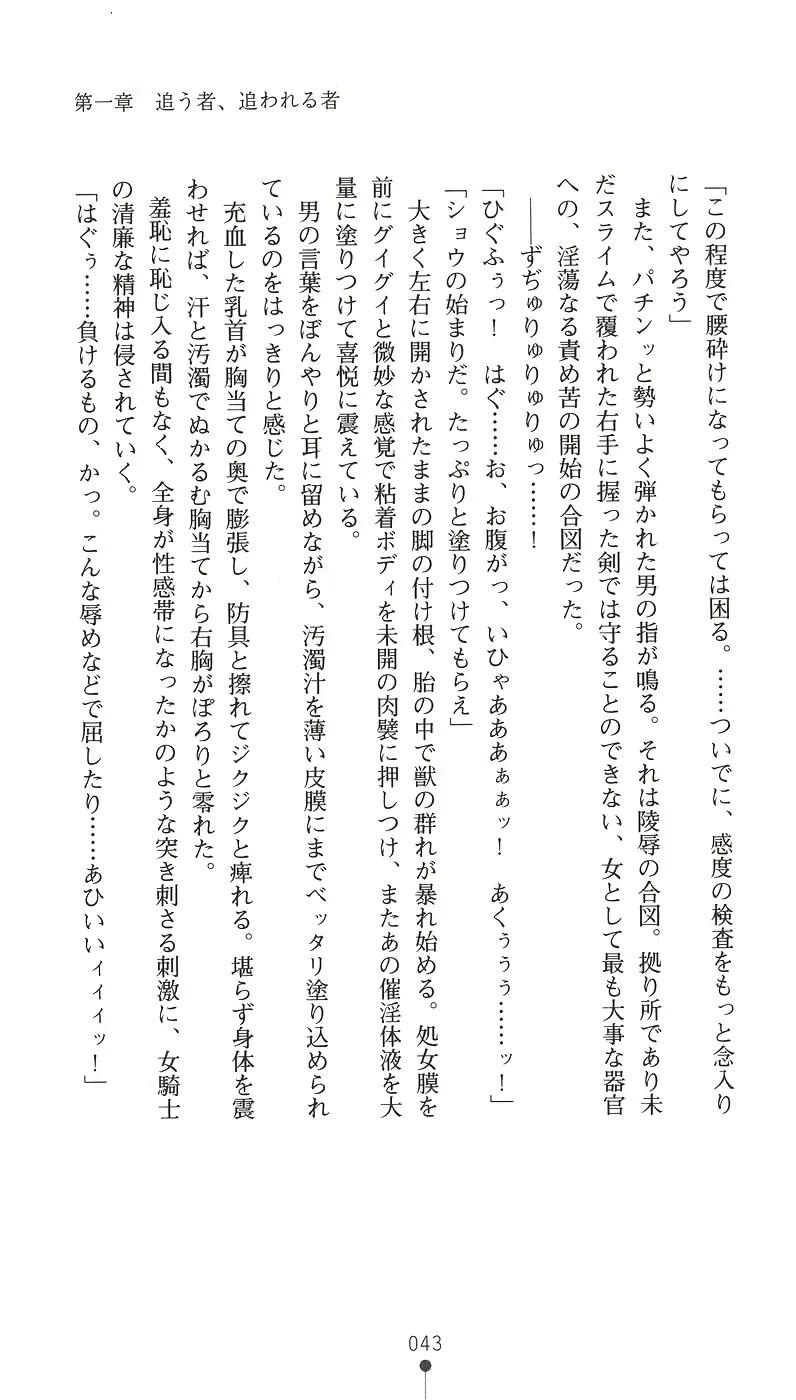 第一章　追う者、追われる者
「この程度で腰砕けになってもらっては困る。……ついでに、感度の検査をもっと念入り
にしてやろう」
　また、パチンッと勢いよく弾かれた男の指が鳴る。それは陵辱の合図。拠り所であり未
だスライムで覆われた右手に握った剣では守ることのできない、女として最も大事な器官
への、淫蕩なる責め苦の開始の合図だった。
　――ずぢゅりゅりゅりゅっ……！
「ひぐふぅっ！　はぐ……お、お腹がっ、いひゃあああぁぁッ！　あくぅぅぅ……ッ！」
「ショウの始まりだ。たっぷりと塗りつけてもらえ」
　大きく左右に開かされたままの脚の付け根、胎の中で獣の群れが暴れ始める。処女膜を
前にグイグイと微妙な感覚で粘着ボディを未開の肉襞に押しつけ、またあの催淫体液を大
量に塗りつけて喜悦に震えている。
　男の言葉をぼんやりと耳に留めながら、汚濁汁を薄い皮膜にまでベッタリ塗り込められ
ているのをはっきりと感じた。
　充血した乳首が胸当ての奥で膨張し、防具と擦れてジクジクと痺れる。堪らず身体を震
わせれば、汗と汚濁でぬかるむ胸当てから右胸がぽろりと零れた。
　羞恥に恥じ入る間もなく、全身が性感帯になったかのような突き刺さる刺激に、女騎士
の清廉な精神は侵されていく。
「はぐぅ……負けるもの、かっ。こんな辱めなどで屈したり……あひいいィィィッ！」
043